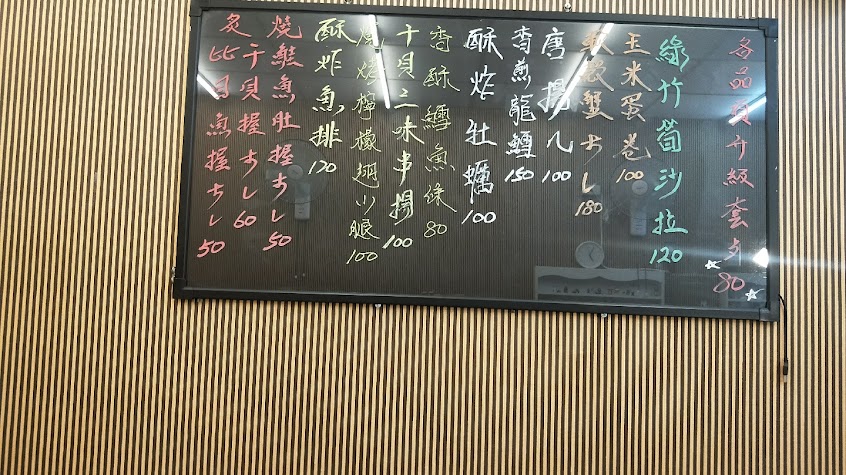 各品項升級套夕 80
綠竹筍沙拉 120
玉米蛋卷 100
軟殼蟹ちし 180
唐揚几 100
香煎龍鱈 150
酥炸牡蠣 100
香酥鱈魚條 80
干貝三味串揚 100
檸檬翅小腿 100
酥炸魚排 120
燒鮭魚肚握ちし 50
干貝握ちし 60
炙比目魚握ちし 50